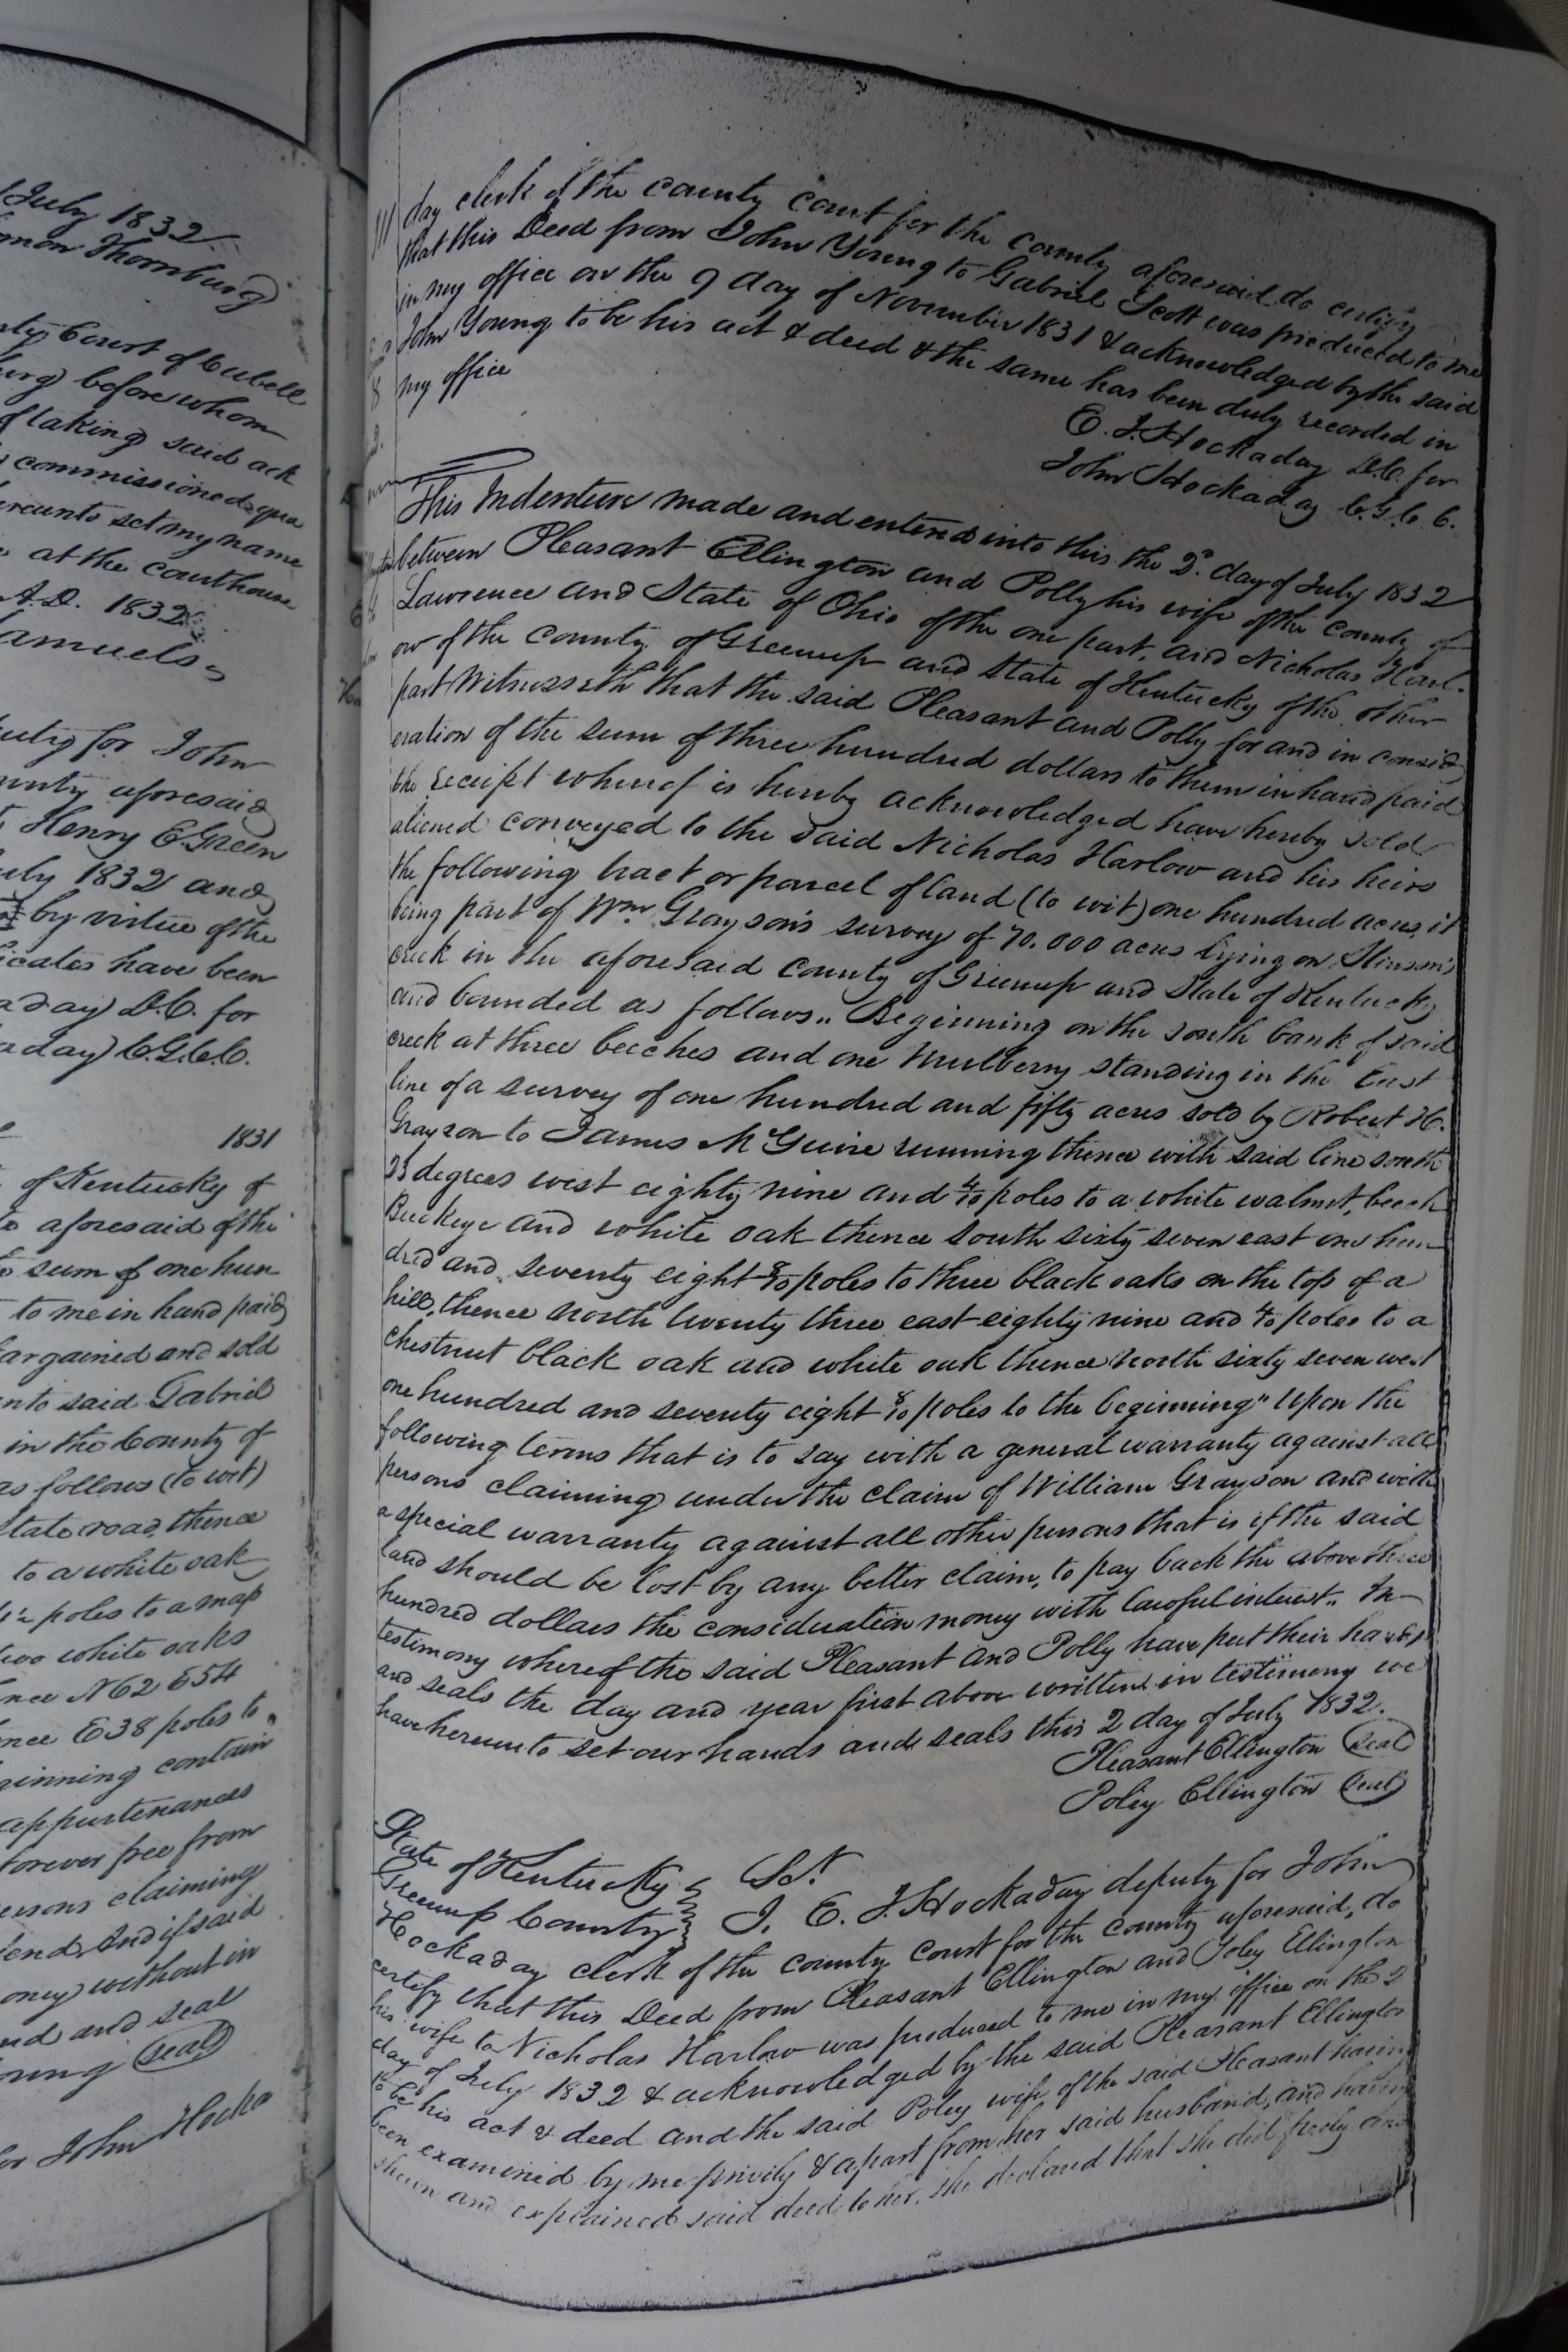 July 1832
Thornburg
Court of Cabell
before whom
taking said ack
commissioned qua
set my name
at the courthouse
A.D. 1832
for John
aforesaid
Henry E. Green
1832 and
by virtue of the
have been
D.C. for
C.G.C.C.
1831
of Kentucky of
aforesaid of the
sum of one hun
to me in hand paid
bargained and sold
said Gabriel
in the County of
as follows (to wit)
State road, thence
to a white oak
poles to a map
two white oaks
N62 E54
E38 poles to
contain
appurtenances
forever free from
claiming
And if said
without in
and seal
(Seal)
John Hocka
day clerk of the county court for the county aforesaid do certify
that this Deed from John Young to Gabriel Scott was produced to me
in my office on the 9 day of November 1831 & acknowledged by the said
John Young to be his act & deed & the same has been duly recorded in
my office
E. J. Hockaday D.C. for
John Hockaday C.G.C.C.
This Indenture made and entered into this the 2d. day of July 1832
between Pleasant Ellington and Polly his wife of the county of
Lawrence and State of Ohio of the one part, and Nicholas Harl-
ow of the county of Greenup and State of Kentucky of the other
part Witnesseth that the said Pleasant and Polly for and in consid
eration of the sum of three hundred dollars to them in hand paid
the receipt whereof is hereby acknowledged have hereby sold
aliened conveyed to the said Nicholas Harlow and his heirs
the following tract or parcel of land (to wit) one hundred acres it
being part of Wm Grayson's survey of 70.000 acres lying on Stinson's
creek in the aforesaid county of Greenup and State of Kentucky
and bounded as follows,, Beginning on the south bank of said
creek at three beeches and one Mulberry standing in the East
line of a survey of one hundred and fifty acres sold by Robert H.
Grayson to James McGuire running thence with said line south
23 degrees west eighty nine and 4/10 poles to a white walnut, beech
Buckeye and white oak thence south sixty seven east one hun
dred and seventy eight 8/10 poles to three black oaks on the top of a
hill, thence north twenty three east eighty nine and 4/10 poles to a
chestnut black oak and white oak thence north sixty seven west
one hundred and seventy eight 8/10 poles to the beginning" Upon the
following terms that is to say with a general warranty against all
persons claiming under the claim of William Grayson and with
a special warranty against all other persons that is if the said
land should be lost by any better claim, to pay back the above three
hundred dollars the consideration money with lawful interest,, In
testimony whereof the said Pleasant and Polly have put their hands
and seals the day and year first above written in testimony we
have hereunto set our hands and seals this 2 day of July 1832.
Pleasant Ellington (Seal)
Poley Ellington (Seal)
State of Kentucky Sct
Greenup County I, E. J. Hockaday deputy for John
Hockaday clerk of the county court for the county aforesaid, do
certify that this Deed from Pleasant Ellington and Poley Ellington
his wife to Nicholas Harlow was produced to me in my office on the 2
day of July 1832 & acknowledged by the said Pleasant Ellington
to be his act & deed and the said Poley wife of the said Pleasant having
been examined by me privily & apart from her said husband, and having
shewn and explained said deed to her, she declared that she did freely and